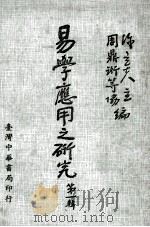 陳立夫主編
周鼎珩等編
易學應用之研究
第一輯
臺灣中華書局印行